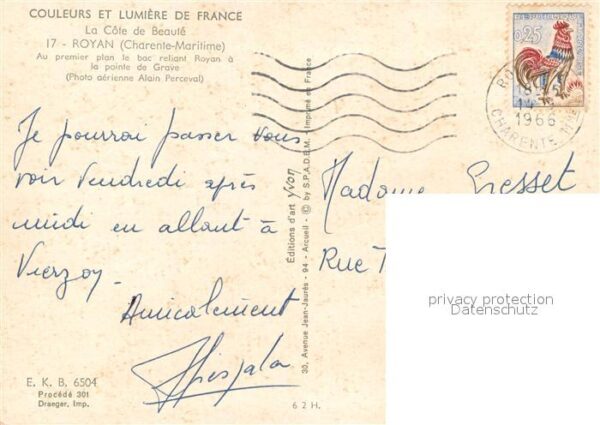 COULEURS ET LUMIÈRE DE FRANCE
La Côte de Beauté
17 - ROYAN (Charente-Maritime)
Au premier plan le bac reliant Royan à
la pointe de Grave
(Photo aérienne Alain Perceval)
Je pourrai passer vous
voir Vendredi après
midi en allant à
Vierzoy.
Amicalement
E. K. B. 6504
Procédé 301
Draeger, Imp.
Éditions d'art Yvon
30, Avenue Jean-Jaurès - 94 - Arcueil - © by S.P.A.D.E.M. - Imprimé en France
6 2 H.
0,25
1966
CHARENTE-Mme
Madame Gresset
Rue
privacy protection
Datenschutz